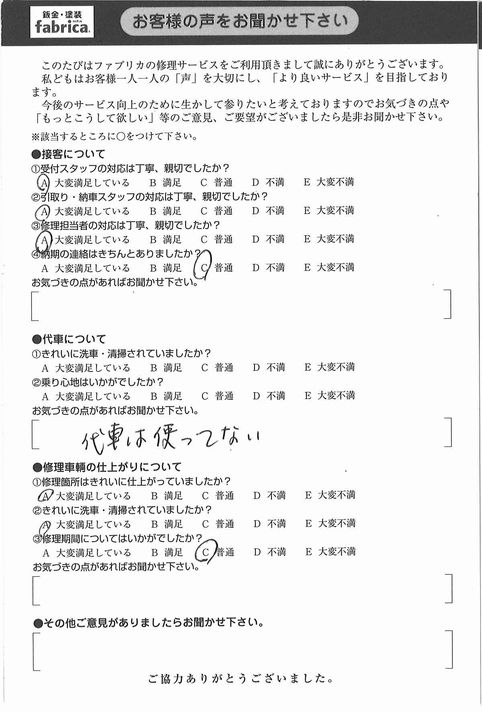 鈑金・塗装
fabrica.
お客様の声をお聞かせ下さい
このたびはファブリカの修理サービスをご利用頂きまして誠にありがとうございます。
私どもはお客様一人一人の「声」を大切にし、「より良いサービス」を目指しており
ます。
今後のサービス向上のために生かして参りたいと考えておりますのでお気づきの点や
「もっとこうして欲しい」等のご意見、ご要望がございましたら是非お聞かせ下さい。
※該当するところに○をつけて下さい。
●接客について
①受付スタッフの対応は丁寧、親切でしたか？
A 大変満足している B 満足 C 普通 D 不満 E 大変不満
②引取り・納車スタッフの対応は丁寧、親切でしたか？
A 大変満足している B 満足 C 普通 D 不満 E 大変不満
③修理担当者の対応は丁寧、親切でしたか？
A 大変満足している B 満足 C 普通 D 不満 E 大変不満
④納期の連絡はきちんとありましたか？
A 大変満足している B 満足 C 普通 D 不満 E 大変不満
お気づきの点があればお聞かせ下さい。
●代車について
①きれいに洗車・清掃されていましたか？
A 大変満足している B 満足 C 普通 D 不満 E 大変不満
②乗り心地はいかがでしたか？
A 大変満足している B 満足 C 普通 D 不満 E 大変不満
お気づきの点があればお聞かせ下さい。
代車は使ってない
●修理車輌の仕上がりについて
①修理箇所はきれいに仕上がっていましたか？
A 大変満足している B 満足 C 普通 D 不満 E 大変不満
②きれいに洗車・清掃されていましたか？
A 大変満足している B 満足 C 普通 D 不満 E 大変不満
③修理期間についてはいかがでしたか？
A 大変満足している B 満足 C 普通 D 不満 E 大変不満
お気づきの点があればお聞かせ下さい。
●その他ご意見がありましたらお聞かせ下さい。
ご協力ありがとうございました。